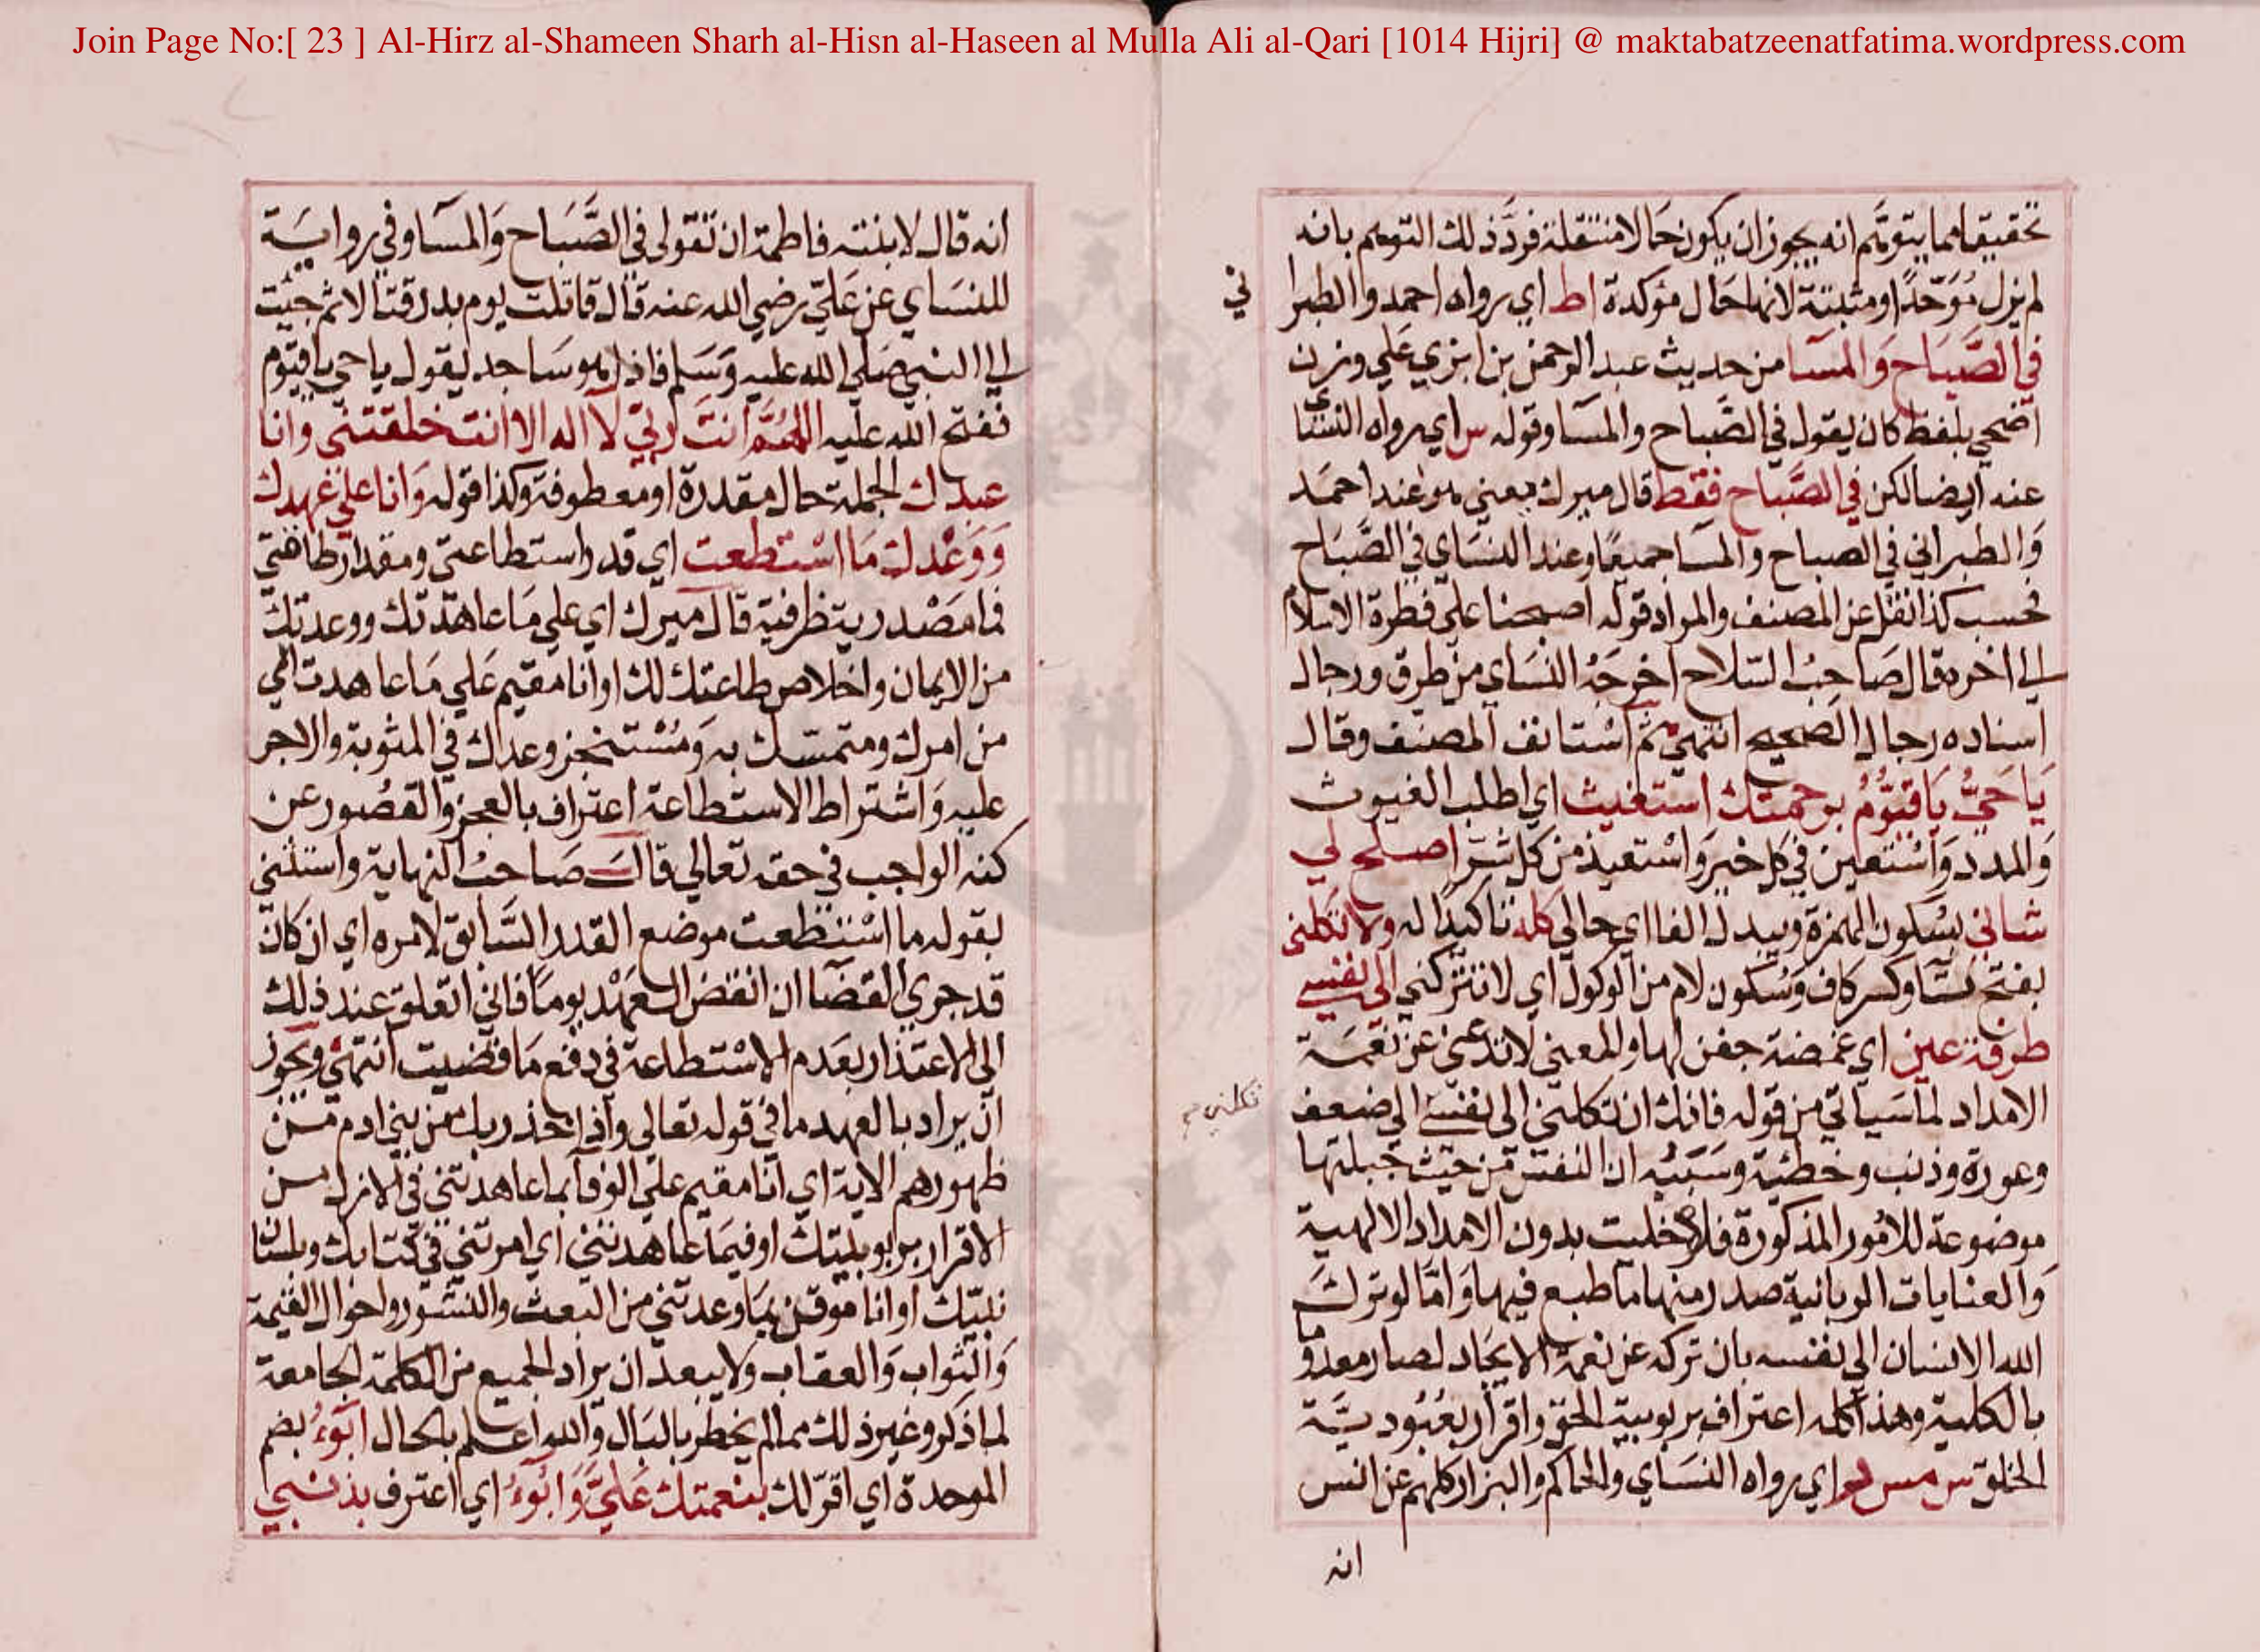 Join Page No:[ 23 ] Al-Hirz al-Shameen Sharh al-Hisn al-Haseen al Mulla Ali al-Qari [1014 Hijri] @ maktabatzeenatfatima.wordpress.com
تحقيقا مما يتوهم انه يجوز ان يكون حالا منتقلة فرد ذلك التوهم بانه
لم يزل مُوَحّدًا ومثبتة لانها حَال مؤكدة اط اي رواه احمد والطبرا
ني
في الصَّبَاح وَالمسَا من حديث عبد الرحمن بن ابزي علي وزن
اضحي بلفظ كان يقول في الصَّباح والمسَا وقوله س اي رواه النسَاي
عنه ايضا لكن في الصَّبَاح فقط قال ميرك يعني هو عند احمَد
وَالطبراني في الصباح والمسَا جميعًا وعند النسَاي في الصَّبَاح
فحسب كذا نقل عن المصنف والمراد قوله اصبحنا علي فطرة الاسلام
الي اخره قال صَاحِبُ السّلاح اخرجَهُ النسَاي من طرق ورجال
اسناده رجال الصحيح انتهي ثم اسْتانف المصنف وقال
يَا حَيُّ يَا قيُّوْمُ برحمتك استغيث اي اطلب الغيوث
وَالمدد وَاسْتعين في كل خير وَاسْتعيذ من كل شرّ اصلح لي
شاني بسُكون الهمزة ويبدل الفا اي حالي كله تاكيدًا له ولا تكلني
بفتح تا وكسر كاف وَسُكون لام من الوكول اي لا تتركني الي نفسي
طرفة عين اي غمضة جفن لها والمعني لا تدعني عن نعمَة
الامداد لما سَياتي من قوله فانك ان تكلني الي نفسي الي ضعف
تكلني
وعورة وذنب وخطئية وسَبَبُه ان النفس من حيث جبلتها
موضوعة للامُور المذكورة فلو خليت بدون الامداد الالهية
وَالعنايات الربانية صدر منها ما طبع فيها وَامّا لو تركَ
الله الانسان الي نفسه بان تركه عن نعمة الايجاد لصار معدوما
بالكلية وهذا كله اعتراف بربوبية الحق واقرار بعُبُوديَّة
الخلق س مس ر اي رواه النسَاي والحاكم والبزار كلهم عن انس
انه
انه قال لابنته فاطمة ان تقولي في الصَّبَاح وَالمسَا وفي روايَة
للنسَاي عن عَليّ رضي الله عنه قال قاتلت يوم بدر قتالا ثم جئت
الي النبي صَلي الله عليه وَسَلم فاذا هو سَاجد يقول يا حي يا قيّوم
ففتح الله عليه اللهُمَّ انتَ ربّي لا اله الا انت خلقتني وانا
عبدك الجملة حال مقدرة او معطوفة وكذا قوله وَانا علي عَهدك
وَوَعْدك مَا اسْتطعت اي قدر استطاعتي ومقدار طاقتي
فما مَصْدرية ظرفية قال ميرك اي علي مَا عاهدتك ووعدتك
من الايمان واخلاص طاعتك لك او انا مقيم عَلي مَا عاهدت الي
من امرك ومتمسّك به وَمُسْتنجز وعدك في المثوبة والاجر
عليه وَاشتراط الاستطاعة اعتراف بالعجز وَالقصُور عن
كنه الواجب في حقه تعالي قالَ صَاحبُ النهاية واستثني
بقوله ما اسْتطعت موضع القدر السَّابق لامره اي ان كان
قد جري القضَا ان انقض العَهْد يومًا فاني اتعلق عند ذلك
الي الاعتذار بعَدم الاسْتطاعة في دفع مَا قضيت انتهي ويجوز
ان يراد بالعهد ما في قوله تعالي واذ اخذ ربك من بني ادم من
ظهورهم الاية اي انا مقيم علي الوفا بما عاهدتني في الازل من
الاقرار بربوبيتك او فيمَا عاهدتني اي امرتني في كتابك ولسَان
نبيّك او انا موقن بمَا وعدتني من البعث والنشور واحوال القيمة
وَالثواب وَالعقاب ولا يبعد ان يراد الجميع من الكلمة الجامعة
لما ذكر وغير ذلك مما لم يخطر بالبَال وَالله اعلم بالحال ابُوْءُ بضم
الموحدة اي اقرّ لك بنعمتك عَليَّ وَابُوْءُ اي اعترف بذنبي